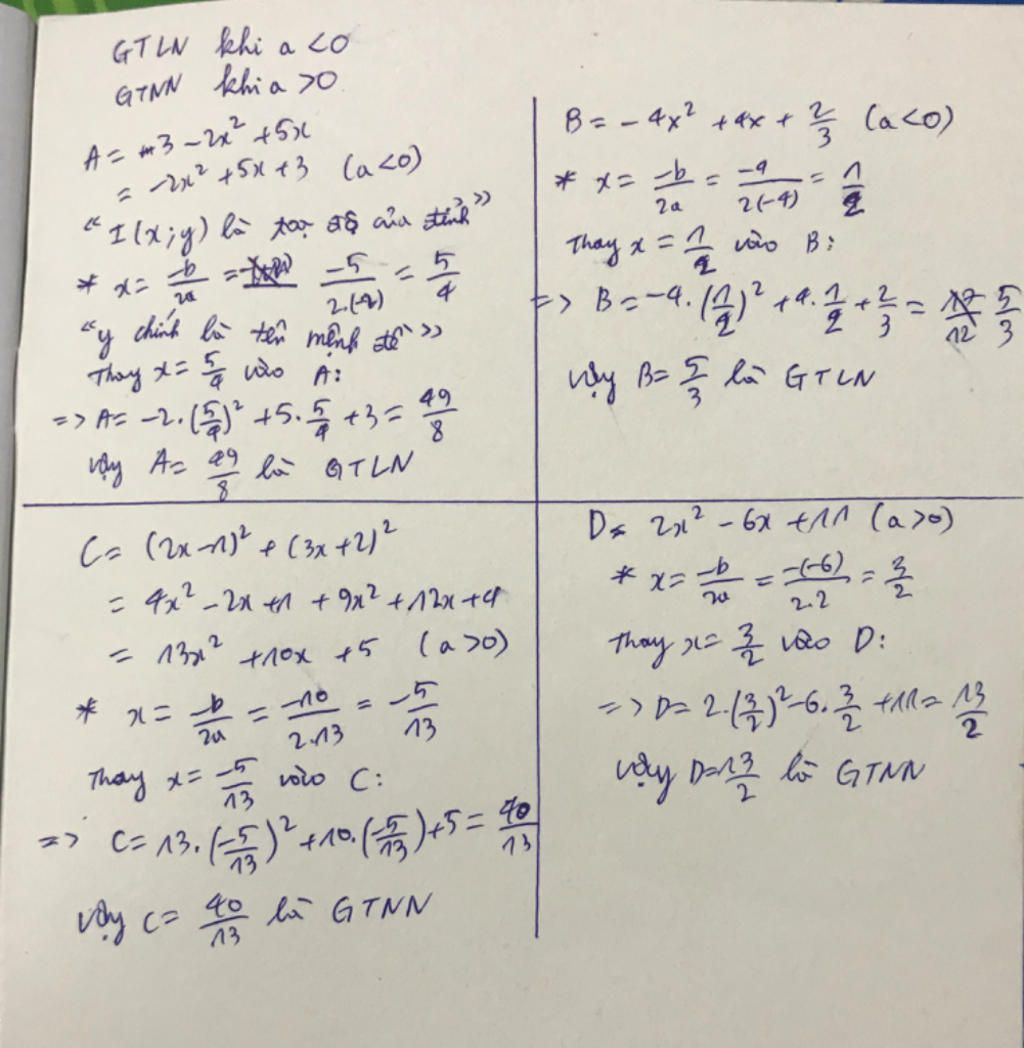 GTLN khi a <0
GTNN khi a >0
A = 3 - 2x² + 5x
= -2x² + 5x + 3 (a<0)
“ I(x;y) là toạ độ của đỉnh ”
* x = -b/2a = -5/2.(-2) = 5/4
“ y chính là tên mệnh đề ”
Thay x = 5/4 vào A:
=> A = -2.(5/4)² + 5.5/4 + 3 = 49/8
Vậy A = 49/8 là GTLN
B = - 4x² + 4x + 2/3 (a<0)
* x = -b/2a = -4/2(-4) = 1/2
Thay x = 1/2 vào B:
=> B = -4.(1/2)² + 4.1/2 + 2/3 = 5/3
Vậy B = 5/3 là GTLN
C = (2x-1)² + (3x+2)²
= 4x² - 2x + 1 + 9x² + 12x + 4
= 13x² + 10x + 5 (a>0)
* x = -b/2a = -10/2.13 = -5/13
Thay x = -5/13 vào C:
=> C = 13.(-5/13)² + 10.(-5/13) + 5 = 40/13
Vậy C = 40/13 là GTNN
D = 2x² - 6x + 11 (a>0)
* x = -b/2a = -(-6)/2.2 = 3/2
Thay x = 3/2 vào D:
=> D = 2.(3/2)² - 6.3/2 + 11 = 13/2
Vậy D = 13/2 là GTNN